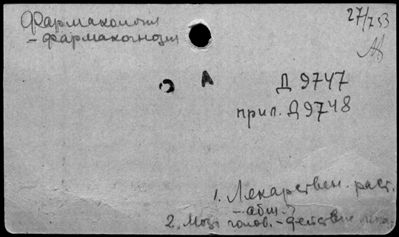 Фармакология
- фармакогнозия
27/753
А
Д 9747
прил. Д 9748
1. Лекарствен. раст.
- общ.
2. Мозг голов. - действие лек.